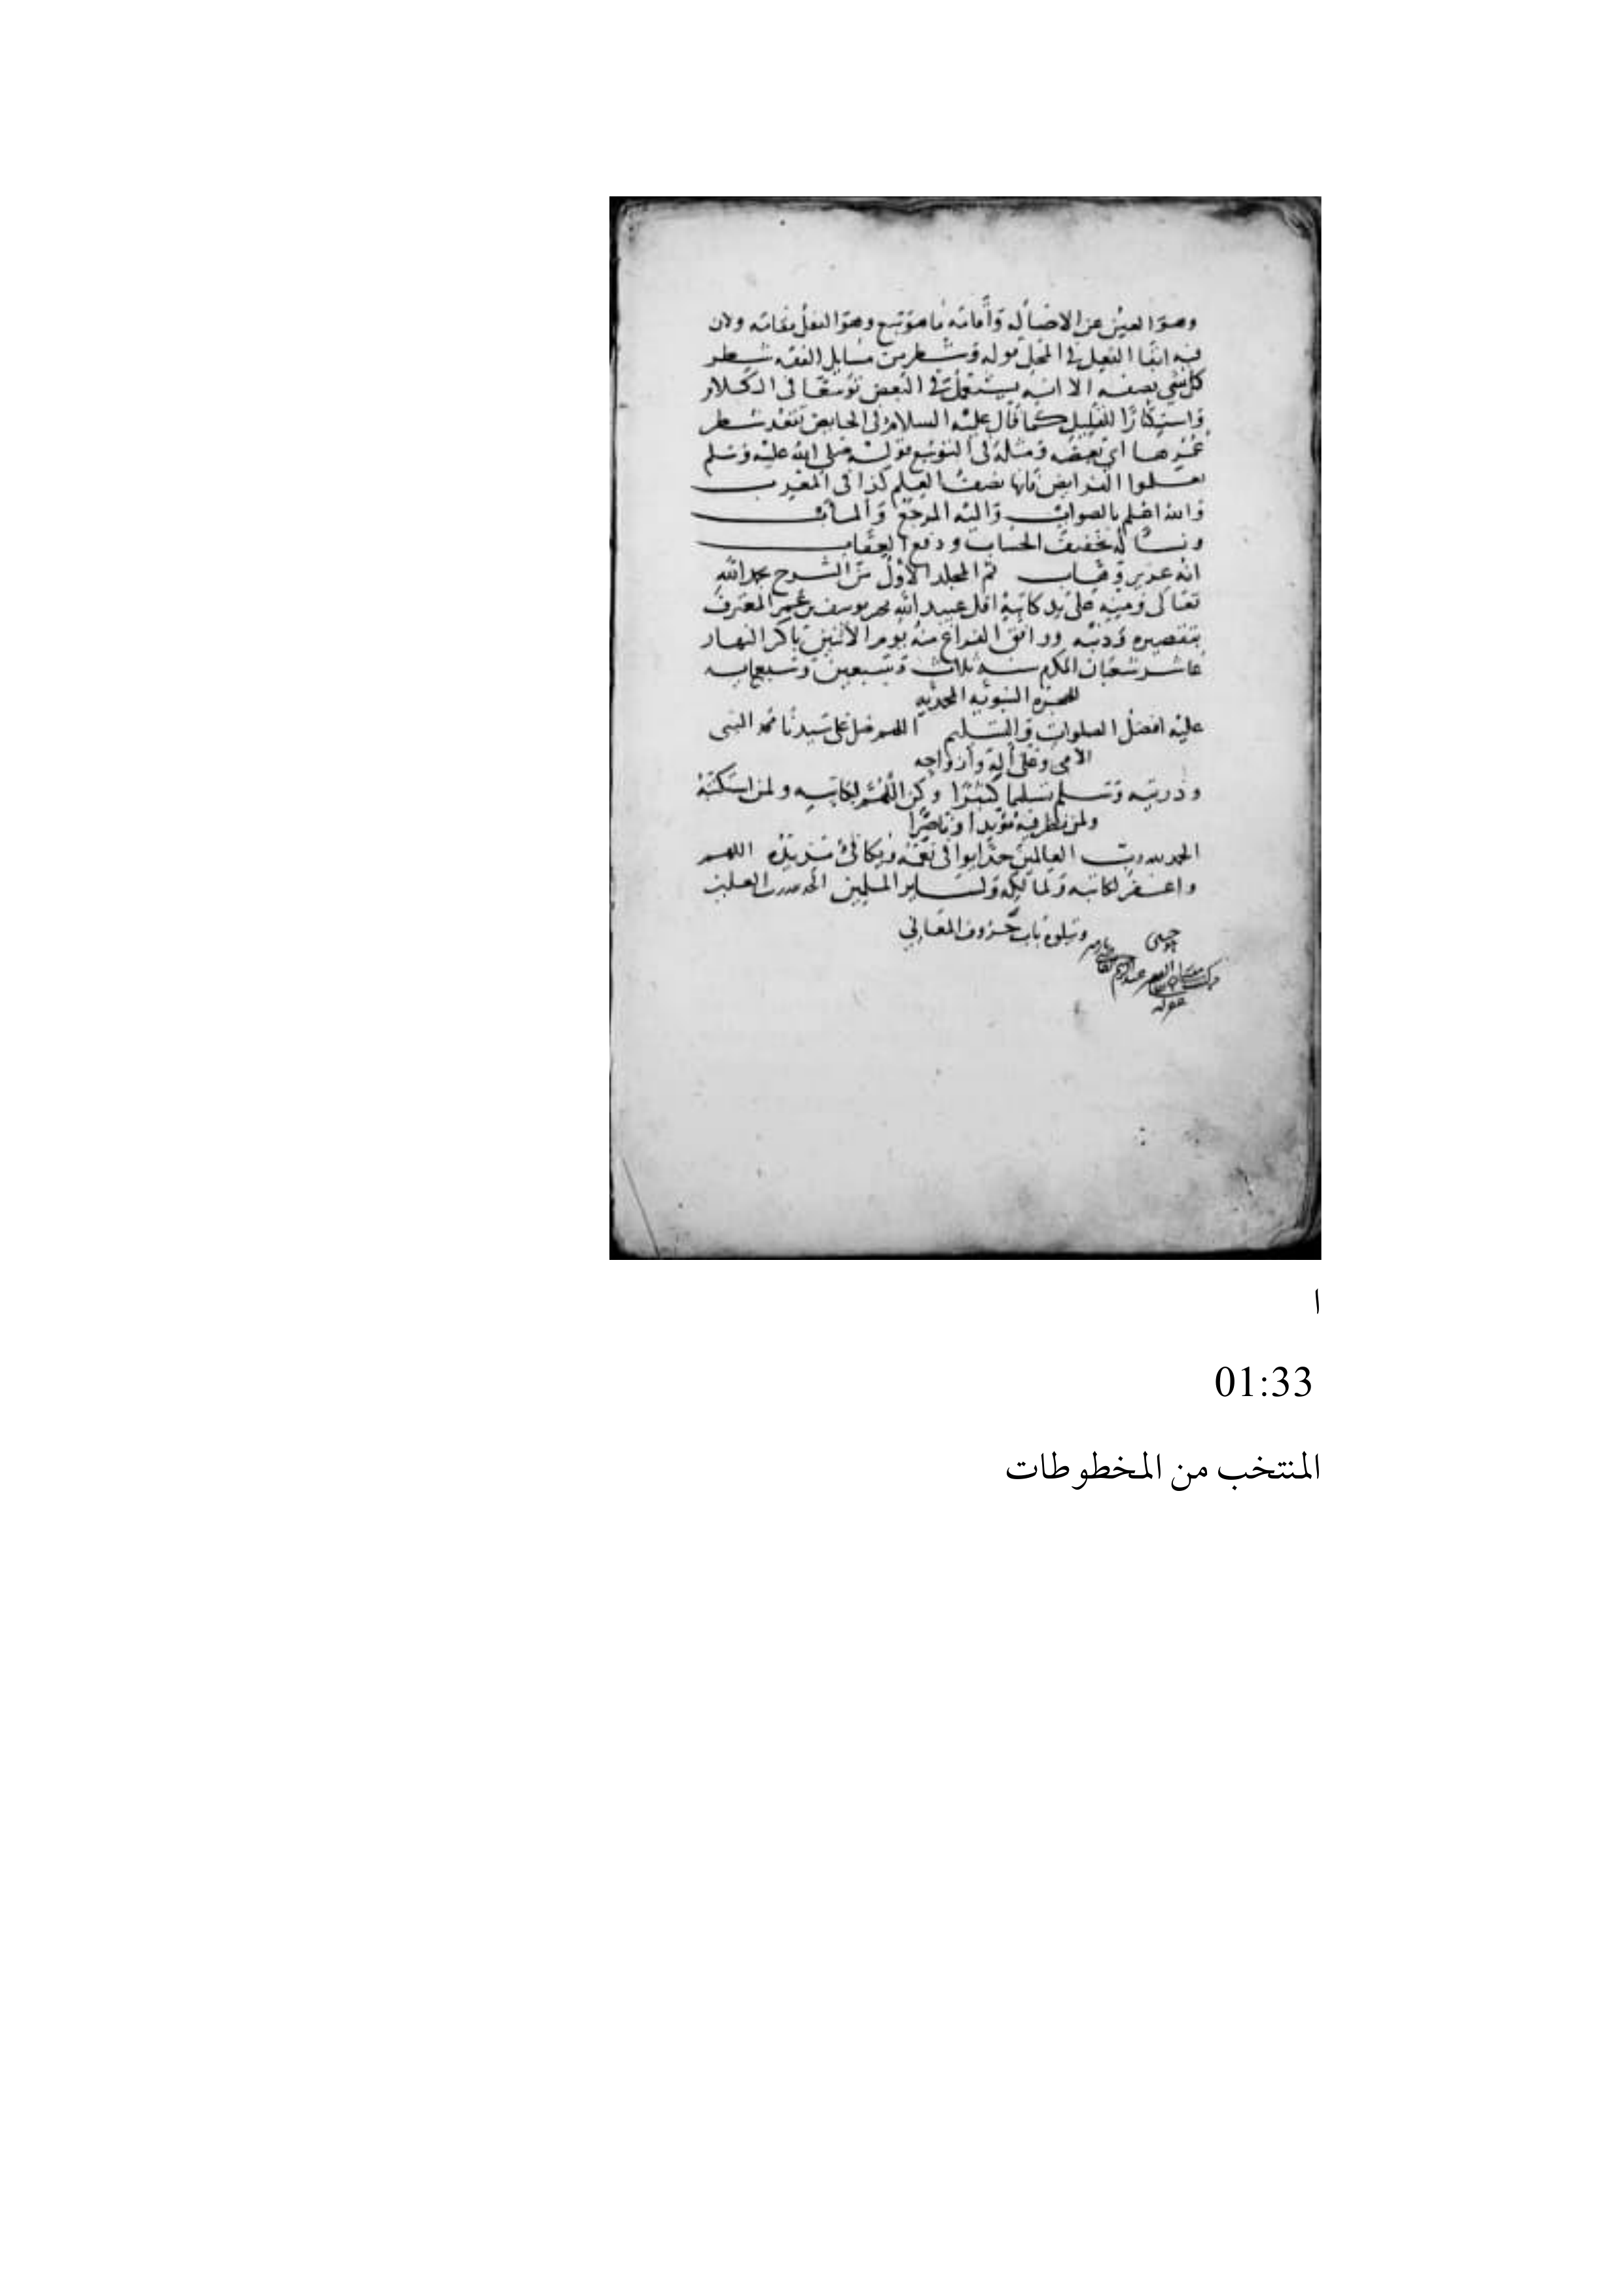 وهو العين عن الاصالة وأمانه ما هو تبع وهو النعل بقائه ولان
فيه ابقا الفعل في المحل قوله وشطر من مسايل الفقه شطر
كل شي نصفه الا انه يستعمل في البعض توسعا في الكلام
واستكثارا للقليل كما قال عليه السلام في الحايض تقعد شطر
عمرها اي بعضه ومثله في التوسع قوله صلى الله عليه وسلم
تعلموا الفرايض فانها نصف العلم كذا في المغرب
والله اعلم بالصواب واليه المرجع والمآب
ونسأله تخفيف الحساب ودفع العقاب
انه عزيز وهاب تم المجلد الاول من الشرح بحمد الله
تعالى ومنه على يد كاتبه اقل عبيد الله يوسف بن عمر المعترف
بتقصيره وذنبه ووافق الفراغ منه يوم الاثنين باكر النهار
عاشر شعبان المكرم سنه ثلاث وسبعين وسبعمايه
للهجرة النبويه المحمديه
عليه افضل الصلوات والتسليم اللهم صل على سيدنا محمد النبي
الامي وعلى آله وازواجه
وذريته وسلم تسليما كثيرا وكن اللهم لكاتبه ولمن استكتبه
ولمن نظر فيه مؤيدا وناصرا
الحمد لله رب العالمين حمدا يوافي نعمه ويكافئ مزيده اللهم
واغفر لكاتبه ولمالكه ولساير المسلمين الحمد لله رب العلمين
ويتلوه باب حروف المعاني
ا
01:33
المنتخب من المخطوطات